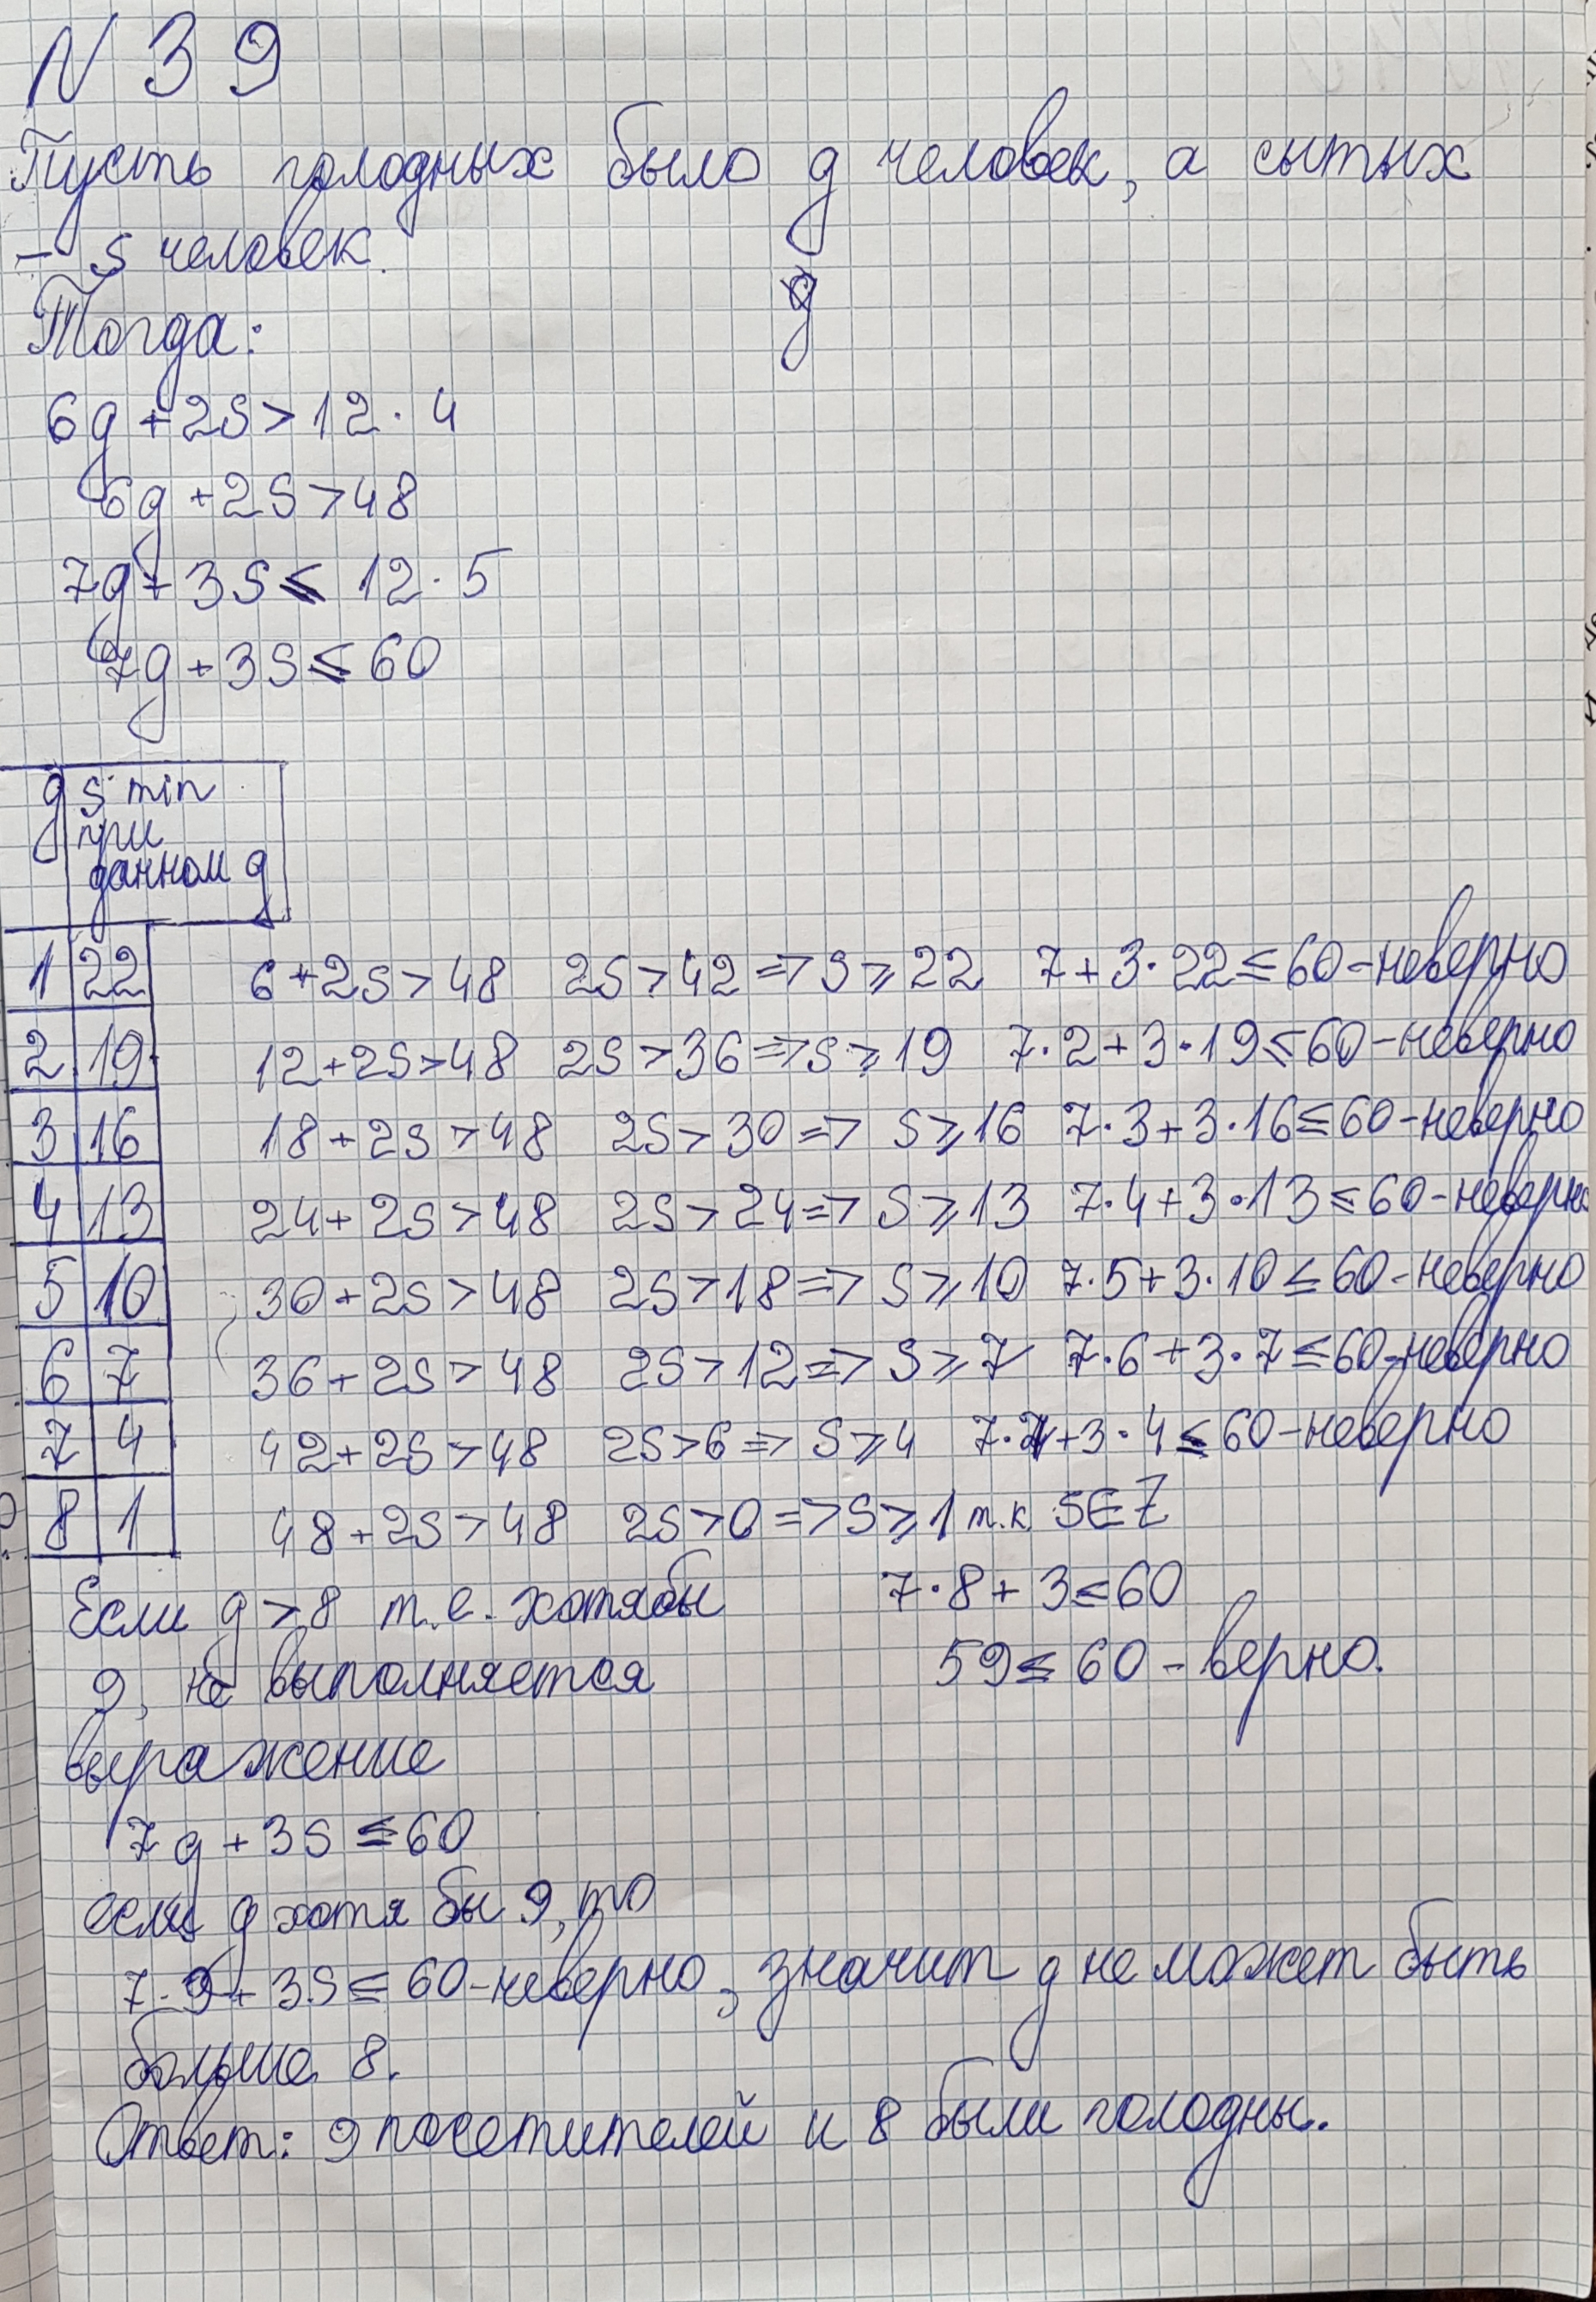 N 39
Пусть голодных было g человек, а сытых
- s человек.
Тогда:
6g + 2s > 12 · 4
6g + 2s > 48
7g + 3s ≤ 12 · 5
7g + 3s ≤ 60
g s min
при
данном g
1 22 6 + 2s > 48 2s > 42 => s ≥ 22 7 + 3 · 22 ≤ 60 - неверно
2 19 12 + 2s > 48 2s > 36 => s ≥ 19 7 · 2 + 3 · 19 ≤ 60 - неверно
3 16 18 + 2s > 48 2s > 30 => s ≥ 16 7 · 3 + 3 · 16 ≤ 60 - неверно
4 13 24 + 2s > 48 2s > 24 => s ≥ 13 7 · 4 + 3 · 13 ≤ 60 - неверно
5 10 30 + 2s > 48 2s > 18 => s ≥ 10 7 · 5 + 3 · 10 ≤ 60 - неверно
6 7 36 + 2s > 48 2s > 12 => s ≥ 7 7 · 6 + 3 · 7 ≤ 60 - неверно
7 4 42 + 2s > 48 2s > 6 => s ≥ 4 7 · 7 + 3 · 4 ≤ 60 - неверно
8 1 48 + 2s > 48 2s > 0 => s ≥ 1 т.к. s ∈ Z
7 · 8 + 3 ≤ 60
59 ≤ 60 - верно.
Если g > 8 т.е. хотябы
9, не выполняется
выражение
7g + 3s ≤ 60
если g хотя бы 9, то
7 · 9 + 3s ≤ 60 - неверно, значит g не может быть
больше 8.
Ответ: 9 посетителей и 8 были голодны.